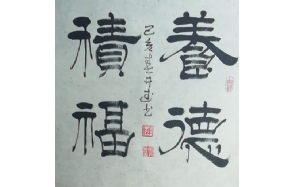 養德
積福
己亥